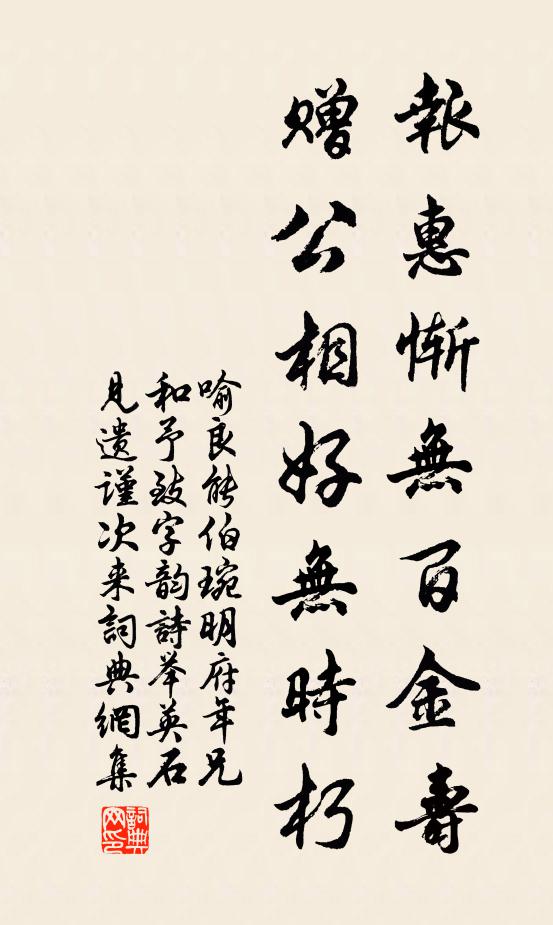 報惠慚無百金壽
贈公相好無時朽
喻良能伯琬明府年兄
和予致字韵詩举英石
見遗謹次来詞典網集
詞典网印